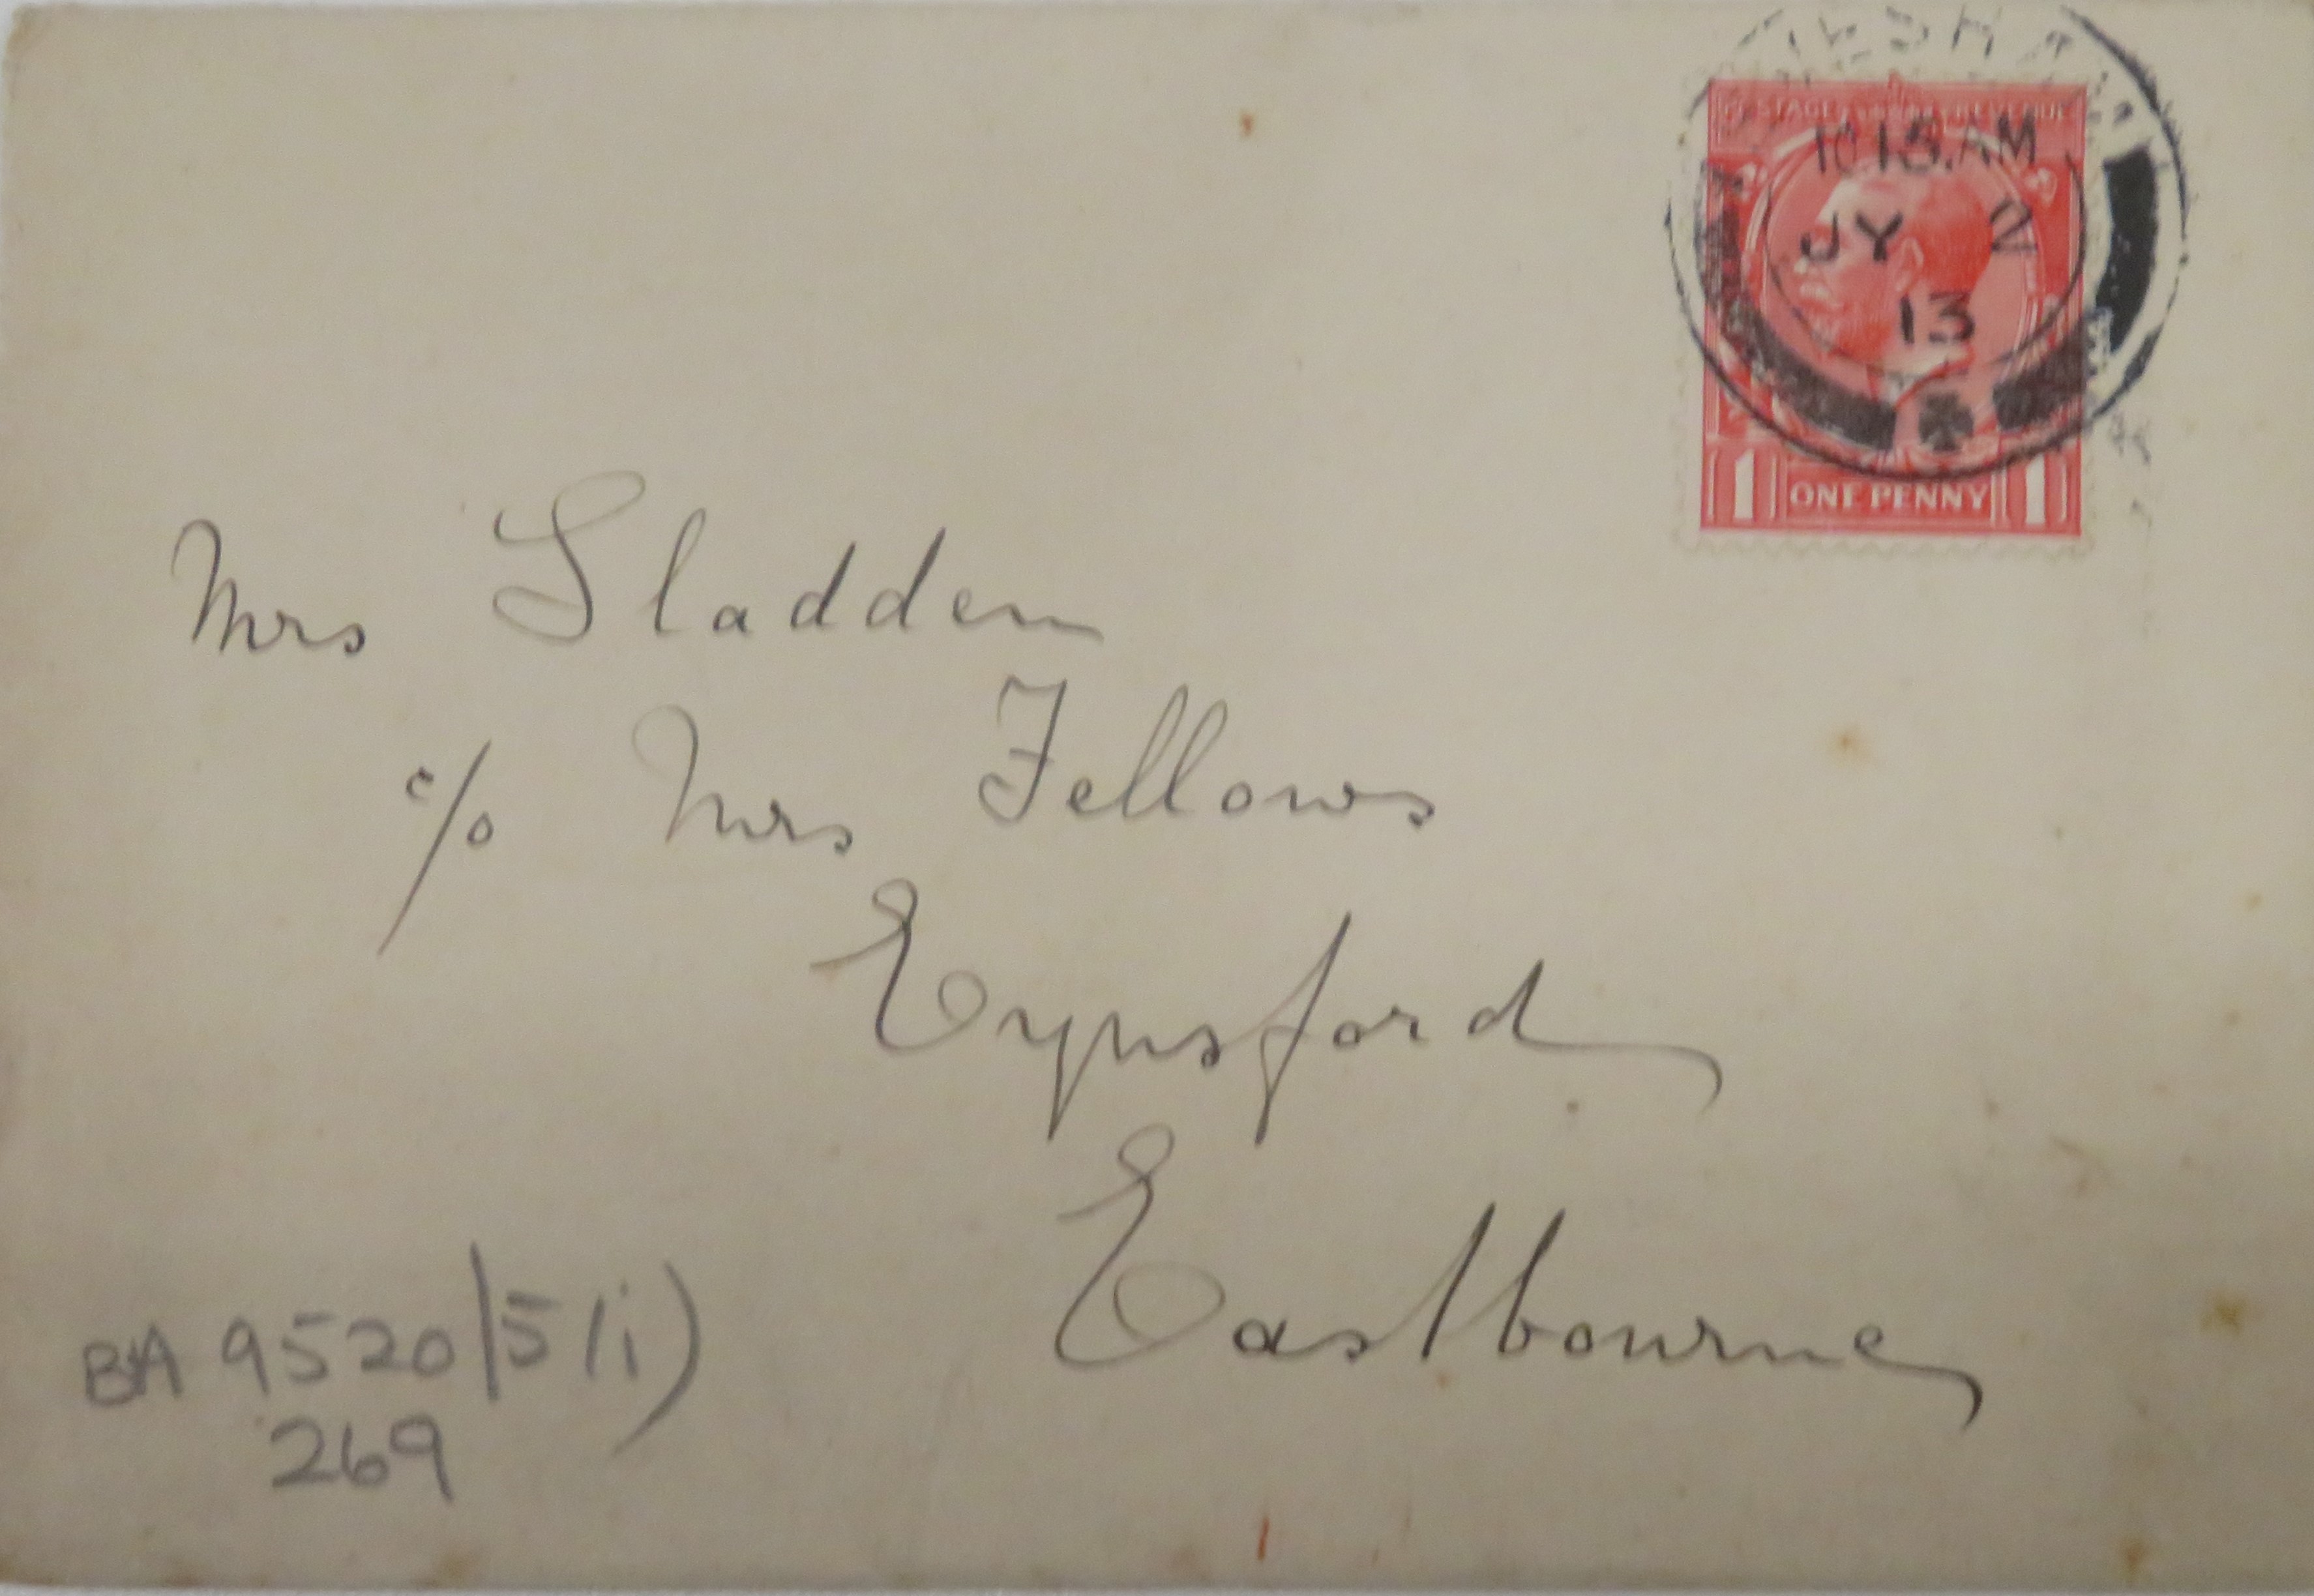 POSTAGE REVENUE
10 15.AM
JY 2
13
1 ONE PENNY 1
Mrs Sladden
c/o Mrs Fellows
Eynsford
Eastbourne
BA 9520/5/i)
269